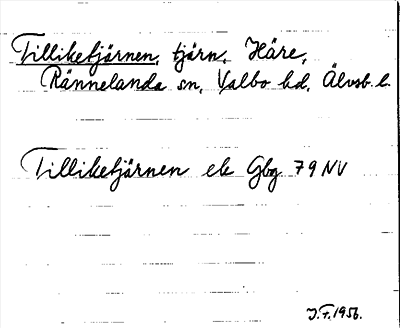 Tilliketjärnen, tjärn, Häre,
Rännelanda sn, Valbo hd, Älvsb. l.
Tilliketjärnen ek Gbg 79 NV
J.F. 1956.